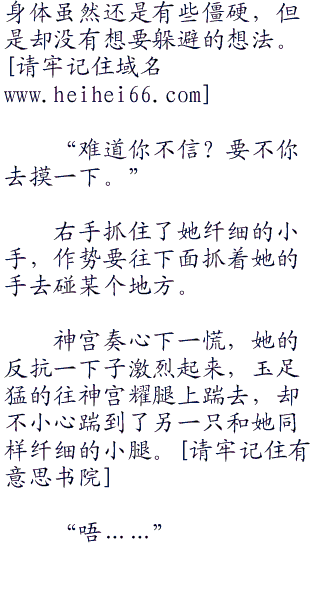 身体虽然还是有些僵硬，但
是却没有想要躲避的想法。
[请牢记住域名
www.heihei66.com]
“难道你不信？要不你
去摸一下。”
右手抓住了她纤细的小
手，作势要往下面抓着她的
手去碰某个地方。
神宫奏心下一慌，她的
反抗一下子激烈起来，玉足
猛的往神宫耀腿上踹去，却
不小心踹到了另一只和她同
样纤细的小腿。[请牢记住有
意思书院]
“唔……”